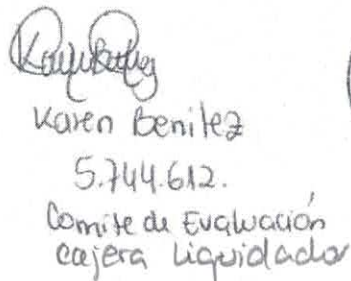 Karen Benitez
5.744.612.
Comite de Evaluación
cajera liquidador